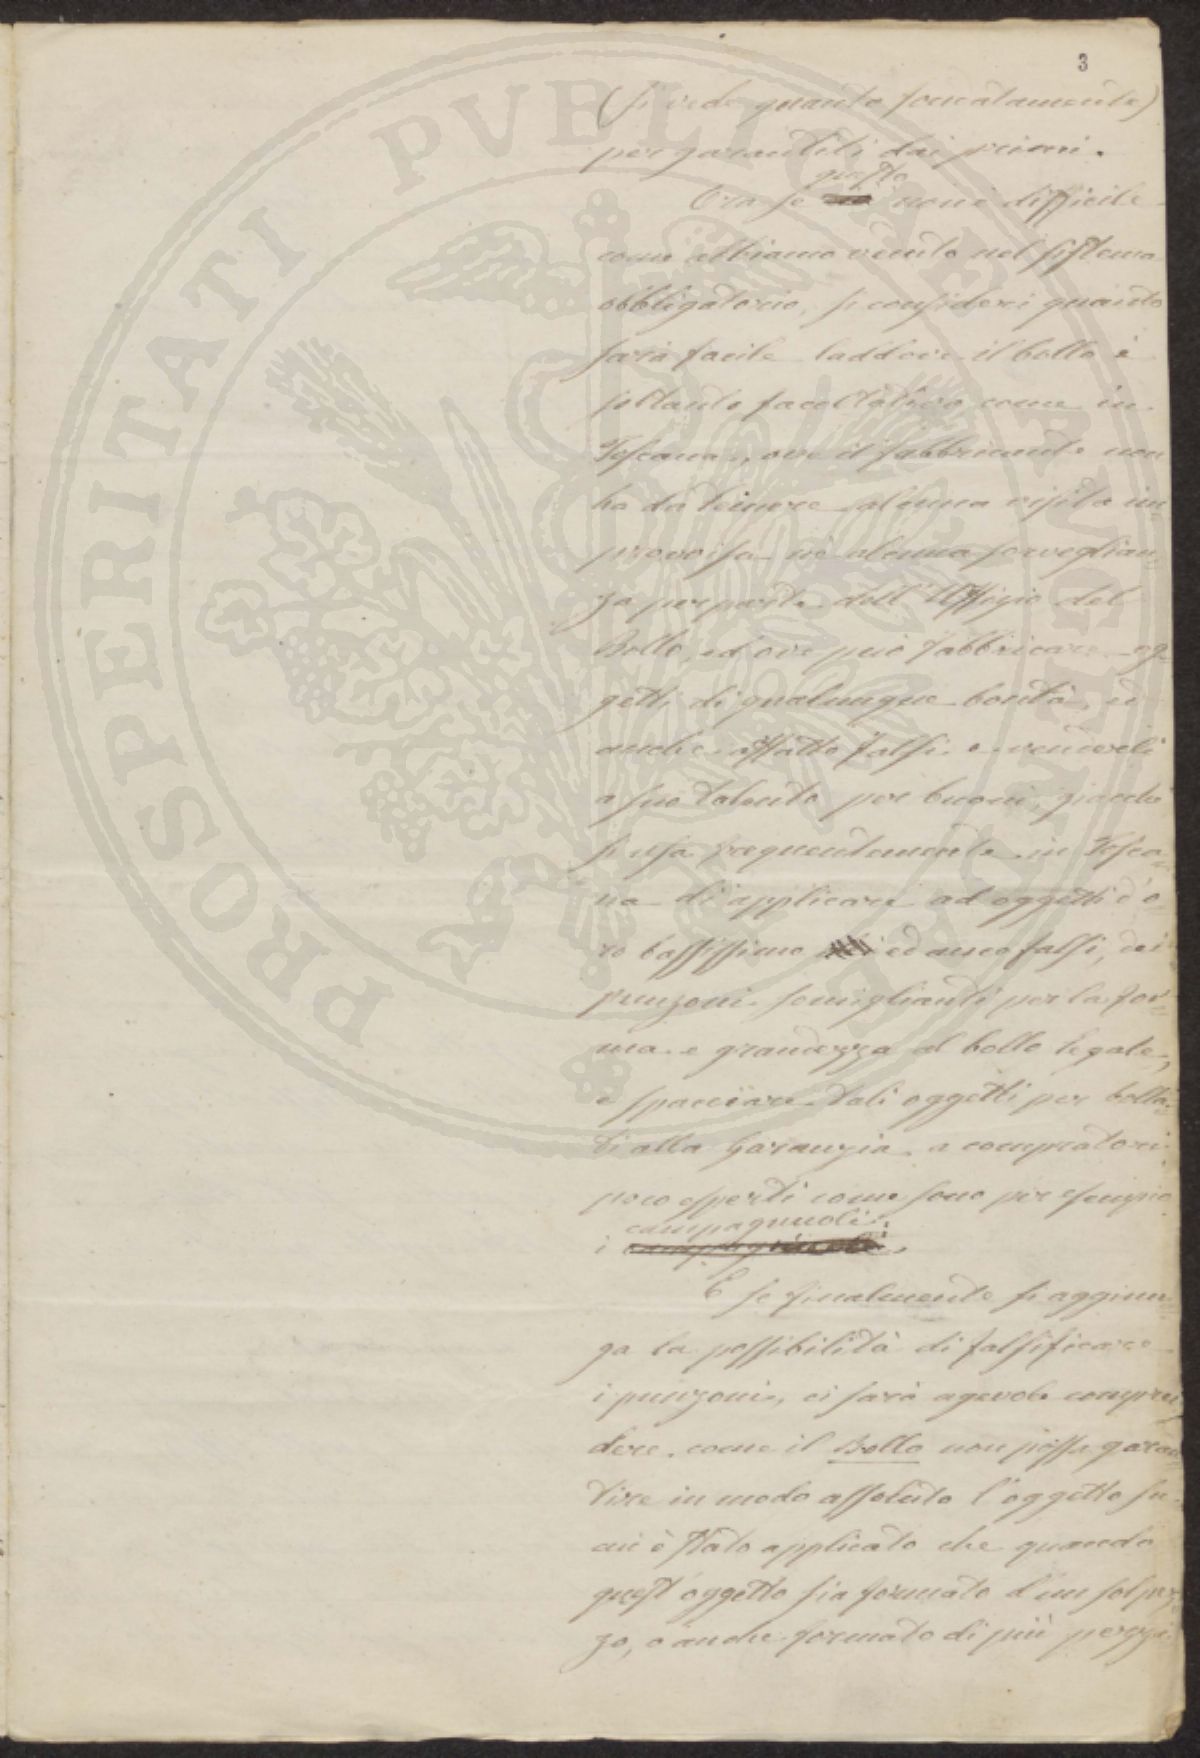 3
(si vede quanto fondatamente)
per garantiti dai primi.
questo
Ora se non è difficile
come abbiamo veduto nel sistema
obbligatorio, si consideri quanto
sarà facile laddove il bollo è
soltanto facoltativo come in
Toscana, ove il fabbricante non
ha da temere alcuna visita im=
provvisa nè alcuna sorveglian=
za per parte dell'Uffizio del
Bollo, ed ove può fabbricare og=
getti di qualunque bontà, ed
anche affatto falsi e venderli
a suo talento per buoni, giacchè
si usa frequentemente in Tosca=
na di applicare ad oggetti d'o=
ro bassissimo ed anco falsi, dei
punzoni somiglianti per la for=
ma e grandezza al bollo legale,
e spacciare tali oggetti per bolla=
ti alla Garanzia a compratori
poco esperti come sono per esempio
campagnuoli.
i
E se finalmente si aggiun=
ga la possibilità di falsificare
i punzoni, ci sarà agevole compren=
dere come il Bollo non possa garan=
tire in modo assoluto l'oggetto su
cui è stato applicato che quando
quest'oggetto sia formato d'un sol pez=
zo, o anche formato di più pezzi
PROSPERITATI PVBLICAE